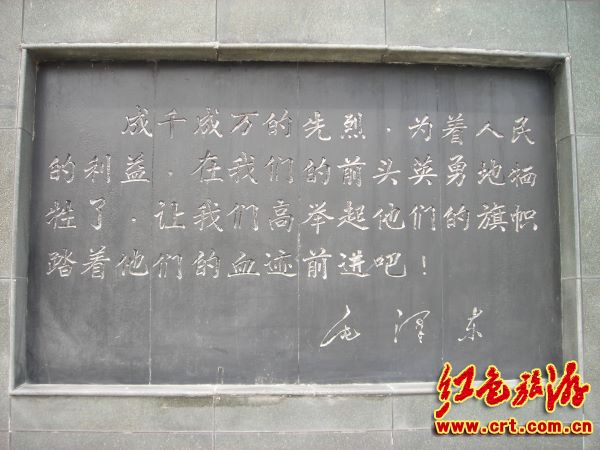 成千成万的先烈，为着人民
的利益，在我们的前头英勇地牺
牲了，让我们高举起他们的旗帜
踏着他们的血迹前进吧！
毛泽东
红色旅游
www.crt.com.cn